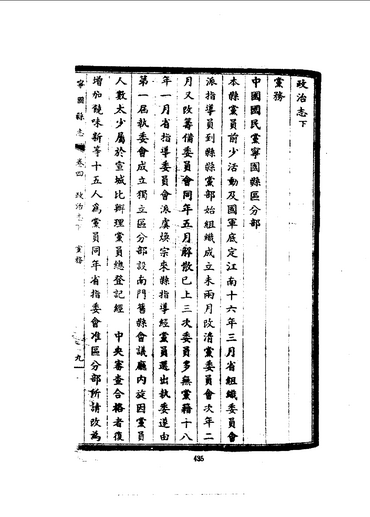 政治志下
黨務
中國國民黨寧國縣區分部
本縣黨員前少活動及國軍底定江南十六年三月省組織委員會
派指導員到縣縣黨部始組織成立未兩月改清黨委員會次年二
月又改籌備委員會同年五月解散已上三次委員多無黨籍十八
年一月省指導委員會派虞煥宗來縣指導經黨員選出執委造由
第一屆執委會成立獨立區分部設南門舊縣會議廳內旋因黨員
人數太少屬於宣城比辦理黨員總登記經 中央審查合格者復
增加饒味新等十五人爲黨員同年省指委會准區分部所請改爲
寧國縣志 卷四 政治志下 黨務 九
435